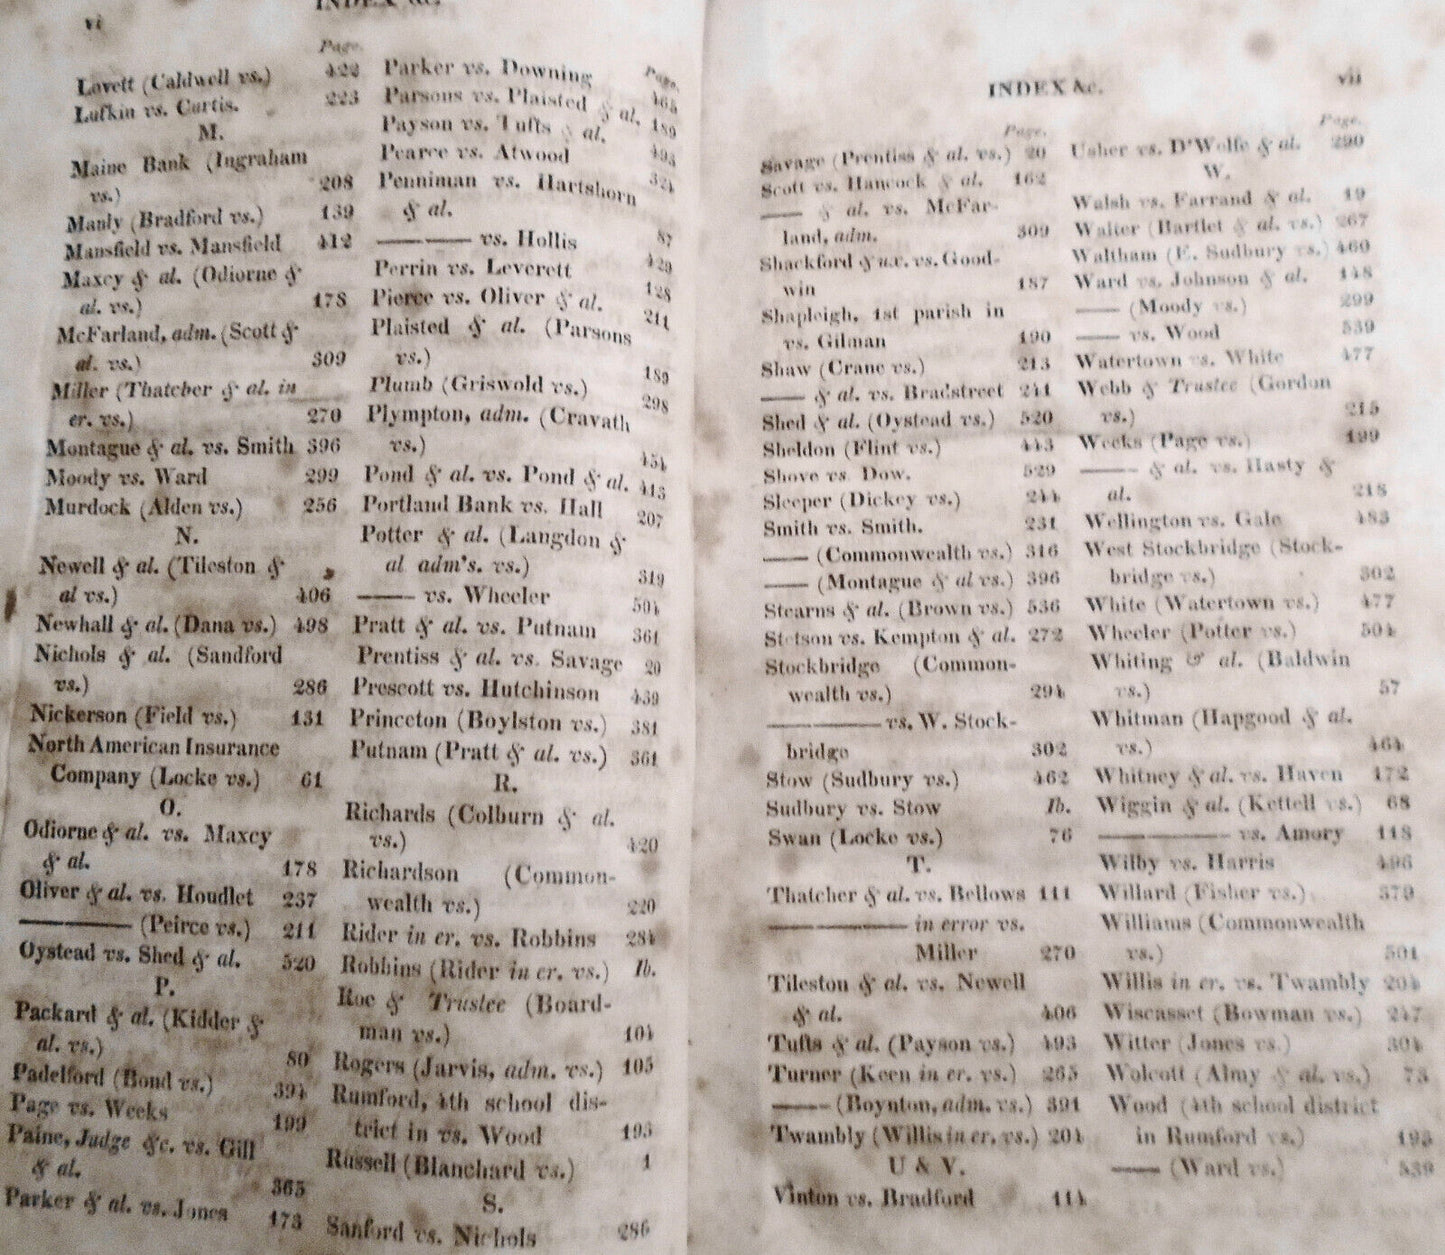 vi
INDEX &c.
Page.
Lovett (Caldwell vs.) 422
Lufkin vs. Curtis. 223
M.
Maine Bank (Ingraham
vs.) 208
Manly (Bradford vs.) 139
Mansfield vs. Mansfield 412
Maxcy & al. (Odiorne &
al. vs.) 178
McFarland, adm. (Scott &
al. vs.) 309
Miller (Thatcher & al. in
er. vs.) 270
Montague & al. vs. Smith 396
Moody vs. Ward 299
Murdock (Alden vs.) 256
N.
Newell & al. (Tileston &
al vs.) 406
Newhall & al. (Dana vs.) 498
Nichols & al. (Sandford
vs.) 286
Nickerson (Field vs.) 131
North American Insurance
Company (Locke vs.) 61
O.
Odiorne & al. vs. Maxcy
& al. 178
Oliver & al. vs. Houdlet 237
——— (Peirce vs.) 211
Oystead vs. Shed & al. 520
P.
Packard & al. (Kidder &
al. vs.) 80
Padelford (Bond vs.) 394
Page vs. Weeks 199
Paine, Judge &c. vs. Gill
& al. 365
Parker & al. vs. Jones 173
Page.
Parker vs. Downing 465
Parsons vs. Plaisted & al. 189
Payson vs. Tufts & al. 493
Pearce vs. Atwood 324
Penniman vs. Hartshorn
& al. 87
—— —— vs. Hollis 429
Perrin vs. Leverett 128
Pierce vs. Oliver & al. 211
Plaisted & al. (Parsons
vs.) 189
Plumb (Griswold vs.) 298
Plympton, adm. (Cravath
vs.) 454
Pond & al. vs. Pond & al. 413
Portland Bank vs. Hall 207
Potter & al. (Langdon &
al adm's. vs.) 319
—— vs. Wheeler 504
Pratt & al. vs. Putnam 361
Prentiss & al. vs. Savage 20
Prescott vs. Hutchinson 439
Princeton (Boylston vs.) 381
Putnam (Pratt & al. vs.) 361
R.
Richards (Colburn & al.
vs.) 420
Richardson (Common-
wealth vs.) 220
Rider in er. vs. Robbins 284
Robbins (Rider in er. vs.) Ib.
Roe & Trustee (Board-
man vs.) 104
Rogers (Jarvis, adm. vs.) 105
Rumford, 4th school dis-
trict in vs. Wood 193
Russell (Blanchard vs.) 1
S.
Sanford vs. Nichols 286
INDEX &c.
vii
Page.
Savage (Prentiss & al. vs.) 20
Scott vs. Hancock & al. 162
—— & al. vs. McFar-
land, adm. 309
Shackford & ux. vs. Good-
win 187
Shapleigh, 1st parish in
vs. Gilman 190
Shaw (Crane vs.) 213
—— & al. vs. Bradstreet 241
Shed & al. (Oystead vs.) 520
Sheldon (Flint vs.) 443
Shove vs. Dow. 529
Sleeper (Dickey vs.) 244
Smith vs. Smith. 231
—— (Commonwealth vs.) 316
—— (Montague & al vs.) 396
Stearns & al. (Brown vs.) 536
Stetson vs. Kempton & al. 272
Stockbridge (Common-
wealth vs.) 294
——— vs. W. Stock-
bridge 302
Stow (Sudbury vs.) 462
Sudbury vs. Stow Ib.
Swan (Locke vs.) 76
T.
Thatcher & al. vs. Bellows 111
——— in error vs.
Miller 270
Tileston & al. vs. Newell
& al. 406
Tufts & al. (Payson vs.) 493
Turner (Keen in er. vs.) 265
—— (Boynton, adm. vs.) 391
Twambly (Willis in er. vs.) 204
U & V.
Vinton vs. Bradford 114
Page.
Usher vs. D'Wolfe & al. 290
W.
Walsh vs. Farrand & al. 19
Walter (Bartlet & al. vs.) 267
Waltham (E. Sudbury vs.) 460
Ward vs. Johnson & al. 148
—— (Moody vs.) 299
—— vs. Wood 539
Watertown vs. White 477
Webb & Trustee (Gordon
vs.) 215
Weeks (Page vs.) 199
—— & al. vs. Hasty &
al. 218
Wellington vs. Gale 483
West Stockbridge (Stock-
bridge vs.) 302
White (Watertown vs.) 477
Wheeler (Potter vs.) 504
Whiting & al. (Baldwin
vs.) 57
Whitman (Hapgood & al.
vs.) 464
Whitney & al. vs. Haven 172
Wiggin & al. (Kettell vs.) 68
——— vs. Amory 118
Wilby vs. Harris 496
Willard (Fisher vs.) 379
Williams (Commonwealth
vs.) 501
Willis in er. vs. Twambly 204
Wiscasset (Bowman vs.) 247
Witter (Jones vs.) 304
Wolcott (Almy & al. vs.) 73
Wood (4th school district
in Rumford vs.) 193
—— (Ward vs.) 539